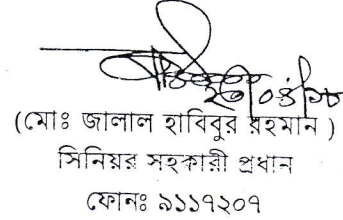 (মোঃ জালাল হাবিবুর রহমান )
সিনিয়র সহকারী প্রধান
ফোনঃ ৯১১৭২০৭